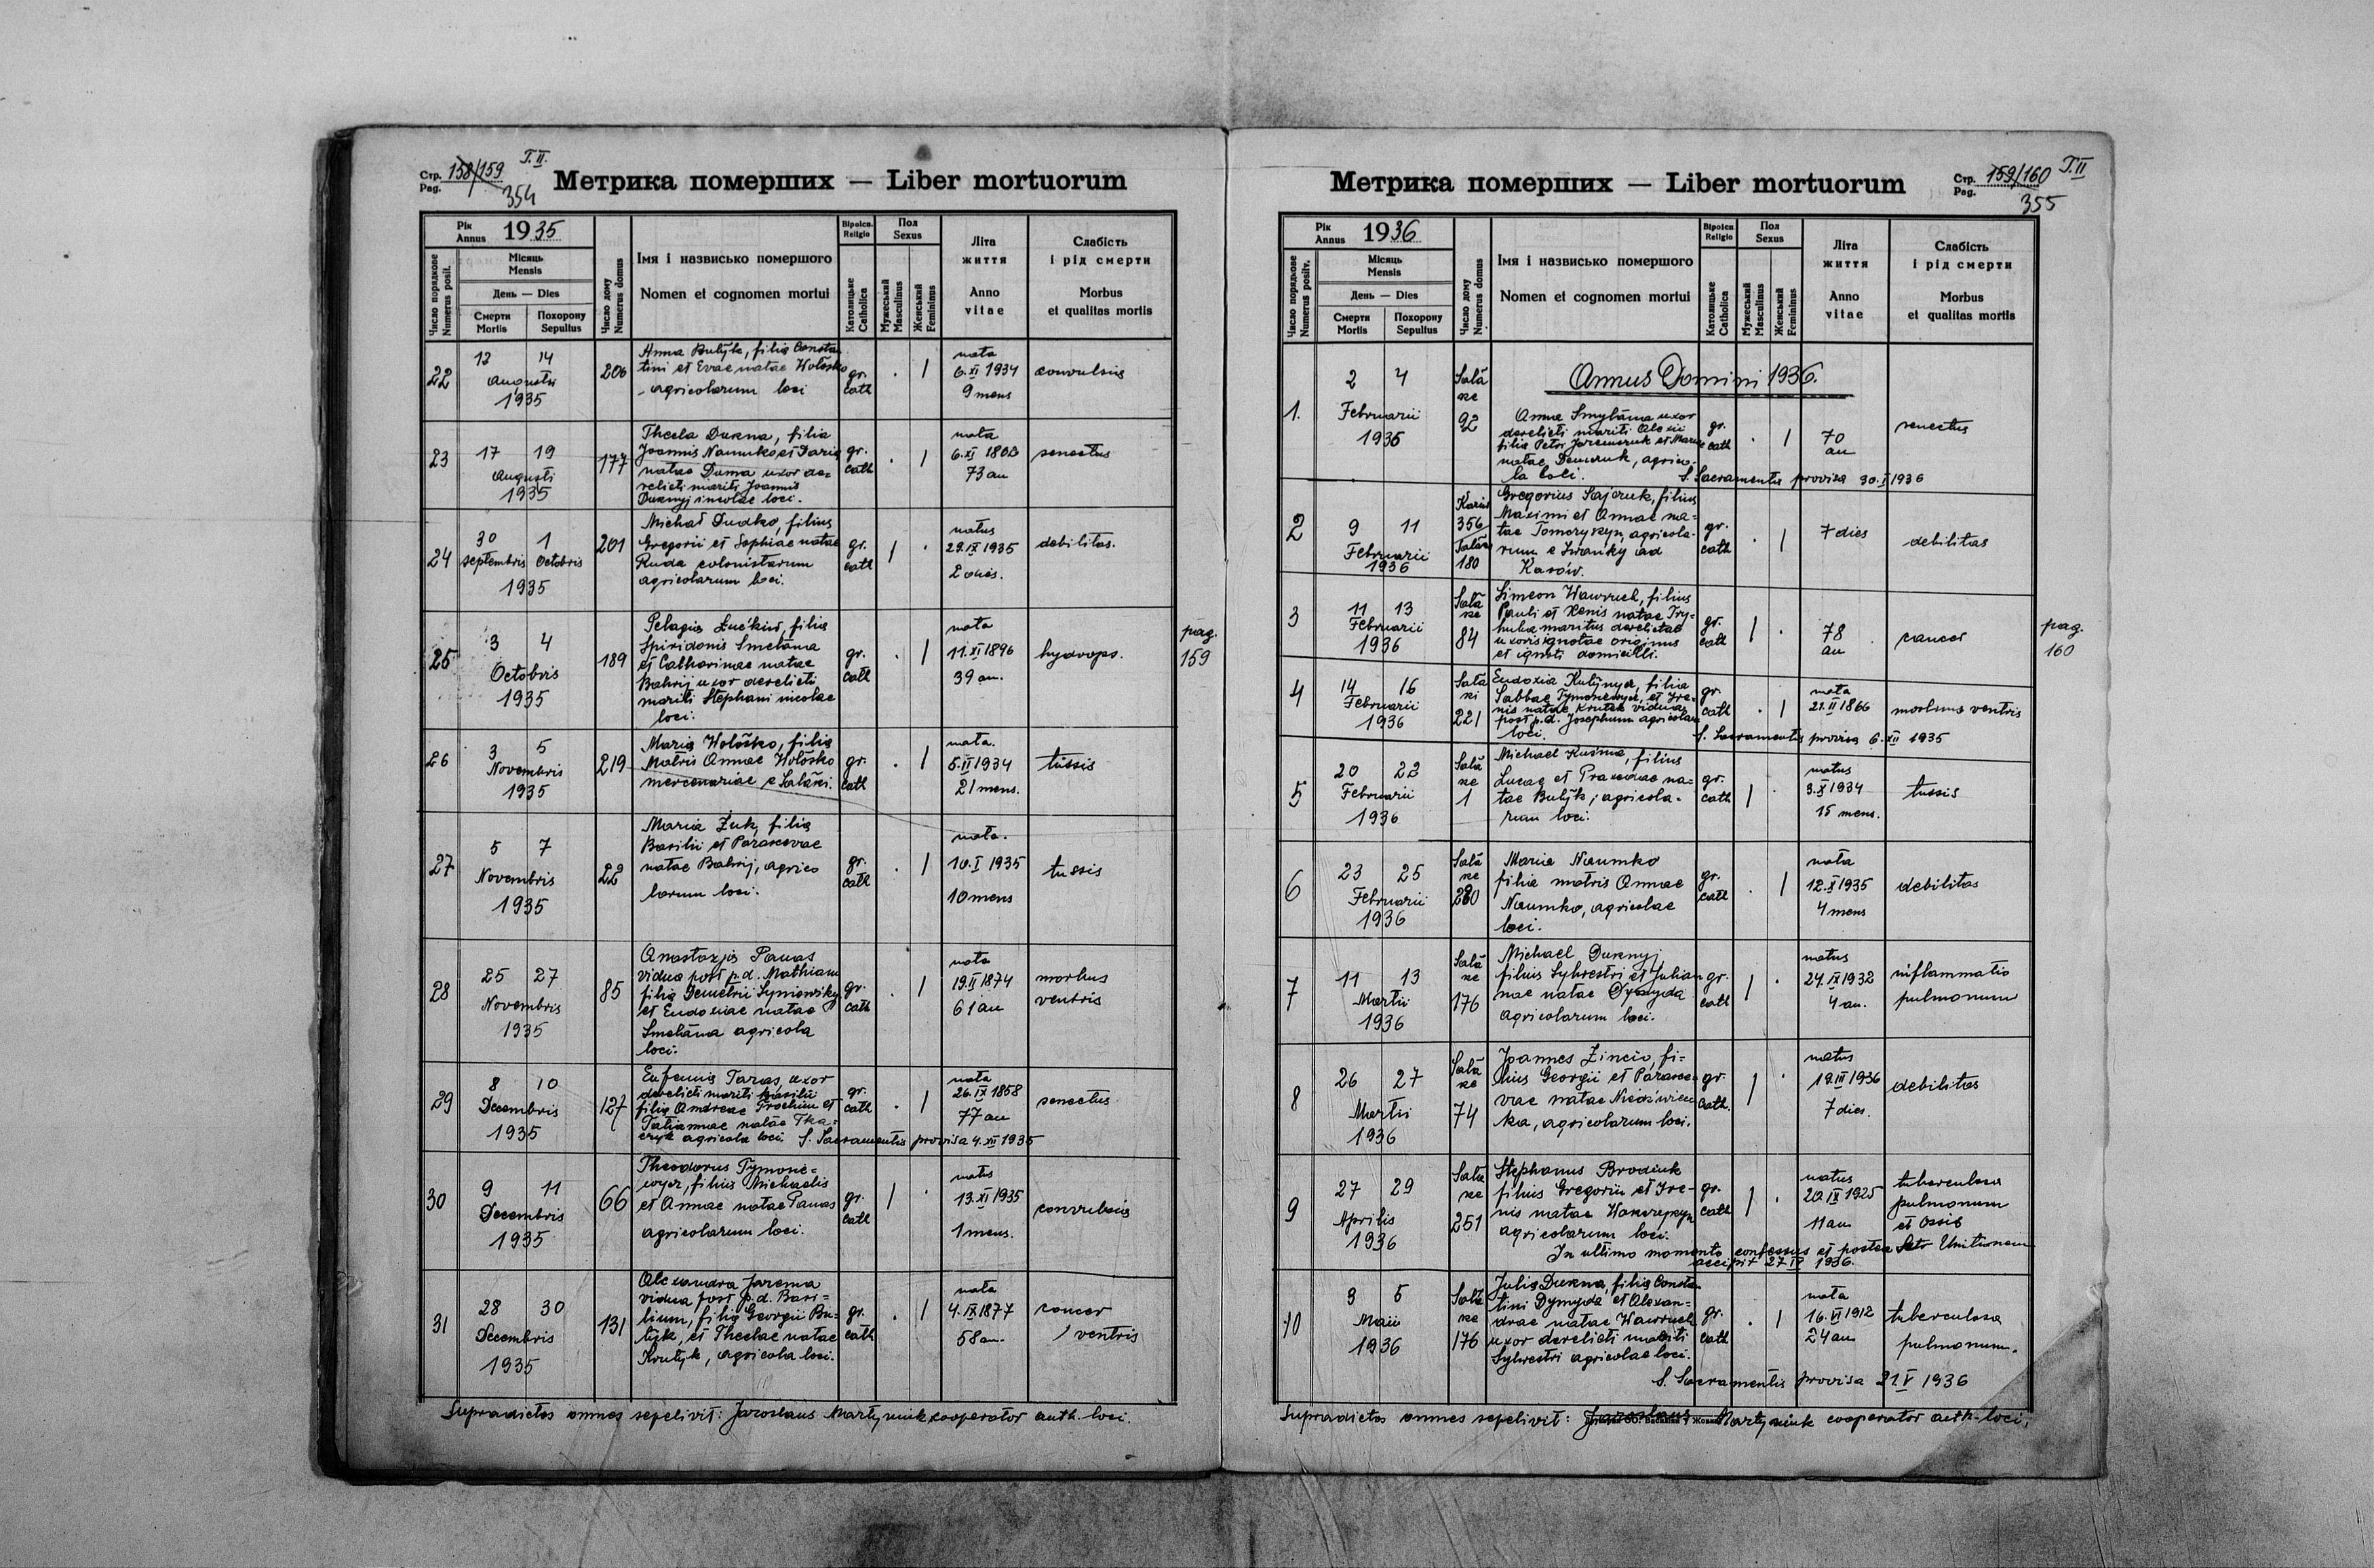 Т. II.
Стр. 158/159
Pag.
354
Метрика померших — Liber mortuorum
Рік
Annus 1935
Число порядкове
Numerus posit.
Місяць
Mensis
День — Dies
Смерти
Mortis
Похорону
Sepultus
Число дому
Numerus domus
Імя і назвисько помершого
Nomen et cognomen mortui
Віроісп.
Religio
Католицьке
Catholica
Пол
Sexus
Мужеський
Masculinus
Женський
Femininus
Літа
життя
Anno
vitae
Слабість
і рід смерти
Morbus
et qualitas mortis
22
12 14
Augusti
1935
206
Anna Bulyk, filia Constan
tini et Evae natae Wołosko
agricolarum loci
gr.
cath
. /
nata
6.XI 1934
9 mens
convulsia
23
17 19
Augusti
1935
177
Thecla Durna, filia
Joannis Naumko et Daria
natae Duma uxor de-
relicti mariti Joannis
Durnyj incolae loci.
gr.
cath
. /
nata
73 an
senectus
24
30 1
Septembris Octobris
1935
201
Michał Dudko, filius
Gregorii et Sophiae natae
Ruda colonistarum
agricolarum loci.
gr.
cath
/ .
natus
29.IX 1935
2 dies.
debilitas.
25
3 4
Octobris
1935
189
Pelagia Łućkiw, filia
Spiridonis Smetana
et Catharinae natae
Bahrij uxor derelicti
mariti Stephani incolae
loci.
gr.
cath
. /
nata
11.XI 1896
39 an.
hydrops.
pag.
159
26
3 5
Novembris
1935
219
Maria Wołosko, filia
Matris Annae Wołosko
mercenariae e Salaski.
gr.
cath
. /
nata.
5.II 1934
21 mens.
tussis
27
5 7
Novembris
1935
22
Maria Żuk, filia
Basilii et Parascevae
natae Bahrij, agrico
larum loci.
gr.
cath
. /
nata.
10.I 1935
10 mens
tussis
28
25 27
Novembris
1935
85
Anastazja Panas
vidua post p.d. Mathiam
filia Demetrii Syniowsky
et Eudoxiae natae
Smetana agricola
loci.
gr.
cath
. /
nata
19.II 1874
61 an
morbus
ventris
29
8 10
Decembris
1935
127
Eufemia Taras, uxor
derelicti mariti Basilii
filia Andreae Prochim et
Tatiannae natae Tka-
czyk agricola loci. S. Sacramentis provisa 4.XII 1935
gr.
cath
. /
nata
26.IX 1858
77 an
senectus
30
9 11
Decembris
1935
66
Theodorus Tymone-
wycz, filius Michaelis
et Annae natae Panas
agricolarum loci.
gr.
cath
/ .
natus
13.XI 1935
1 mens.
convulsia
31
28 30
Decembris
1935
131
Alexandra Jarema
vidua post p.d. Basi-
lium, filia Georgii Bu-
lyk, et Theclae natae
Krutyk, agricola loci.
gr.
cath
. /
nata
4.IX 1877
58 an.
cancer
ventris
Supradictos omnes sepelivit: Jaroslaus Martyniuk cooperator auth. loci.
Метрика померших — Liber mortuorum
Стр. 159/160 Т. II
Pag.
355
Рік
Annus 1936
Число порядкове
Numerus positv.
Місяць
Mensis
День — Dies
Смерти
Mortis
Похорону
Sepultus
Число дому
Numerus domus
Імя і назвисько помершого
Nomen et cognomen mortui
Віроісп.
Religio
Католицьке
Catholica
Пол
Sexus
Мужеський
Masculinus
Женський
Femininus
Літа
життя
Anno
vitae
Слабість
і рід смерти
Morbus
et qualitas mortis
Annus Domini 1936.
1.
2 4
Februarii
1936
92
Anna Smetana uxor
derelicti mariti Alexii
filia Petri Jaremczuk et Mariae
natae Demczuk, agrico-
la loci. S. Sacramentis provisa 30.I 1936
gr.
cath
. /
70
an
senectus
2
9 11
Februarii
1936
356
180
Gregorius Sajczuk, filius
Maximi et Annae na-
tae Tomoryzyn, agricola-
rum e Iwanky ad
Karów.
gr.
cath
. /
7 dies
debilitas
3
11 13
Februarii
1936
84
Simeon Wawruch, filius
Pauli et Xenis natae Try-
huba maritus derelictae
uxoris ignotae originis
et ignoti domicilii.
gr.
cath
/ .
78
an
cancer
pag.
160
4
14 16
Februarii
1936
221
Eudoxia Kulynycz, filia
Sabbae Tymonewycz, et Ire-
nis natae Krutek vidua
post p.d. Josephum agricola
loci.
S. Sacramentis provisa 6.XII 1935
gr.
cath
. /
nata
21.II 1866
morbus ventris
5
20 22
Februarii
1936
Sala
ke
1
Michael Kuśma, filius
Lucae et Praxedae na-
tae Bulyk, agricola-
rum loci.
gr.
cath
/ .
natus
3.X 1934
15 mens.
tussis
6
23 25
Februarii
1936
Sala
ke
280
Maria Naumko
filia matris Annae
Naumko, agricolae
loci.
gr.
cath
. /
nata
12.X 1935
4 mens
debilitas
7
11 13
Martii
1936
Sala
ke
176
Michael Durnyj
filius Sylvestri et Julian
nae natae Dymyda
agricolarum loci.
gr.
cath
/ .
natus
24.IX 1932
4 an.
inflammatio
pulmonum
8
26 27
Martii
1936
Sala
ke
74
Joannes Zinciо, fi-
lius Georgii et Parasce-
vae natae Niedźwied
ka, agricolarum loci.
gr.
cath.
/ .
natus
19.III 1936
7 dies.
debilitas
9
27 29
Aprilis
1936
Sala
ke
251
Stephanus Brodiuk
filius Gregorii et Ire-
nis natae
agricolarum loci.
In ultimo momento confessus et postea Unctionem
accipit 27 IV 1936.
gr.
cath
/ .
natus
20.IX 1925
11 an
tuberculosa
pulmonum
et ossis
10
3 5
Maii
1936
Sala
ke
176
Julia Durna, filia Consta
tini Dymyda et Alexan-
drae natae Wawruch
uxor derelicti mariti
Sylvestri agricolae loci.
gr.
cath
. /
nata
16.VI 1912
24 an
tuberculosa
pulmonum.
S. Sacramentis provisa 21.V 1936
Supradictos omnes sepelivit: Jaroslaus Martyniuk cooperator auth. loci.